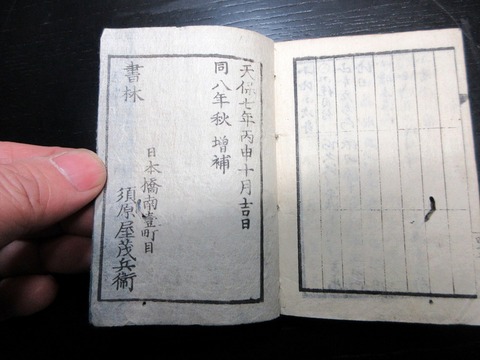 天保七年丙申十月吉日
同八年秋増補
書林
日本橋南壹町目
須原屋茂兵衛